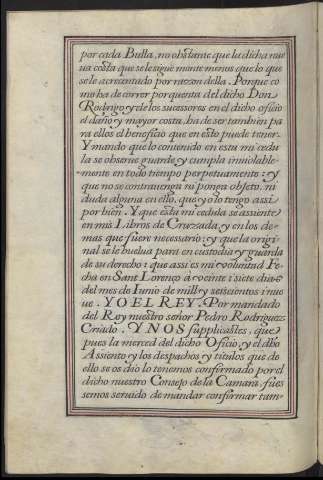 por cada Bulla, no obstante que la dicha nue
ua costa que se le sigue monte menos que lo que
se le acrecentado por razon della. Porque co
mo ha de correr por quenta del dicho Don
Rodrigo y de los sucessores en el dicho oficio
el daño y mayor costa, ha de ser tambien pa
ra ellos el beneficio que en esto puede tener.
Y mando que lo contenido en esta mi cedu
la se obserue guarde y cumpla inuiolable-
-mente en todo tiempo perpetuamente: y
que no se contrauenga ni ponga objeto, ni
duda alguna en ello, que yo lo tengo assi
por bien. Y que esta mi cedula se assiente
en mis Libros de Cruzada, y en los de-
mas que fuere necessario: y que la origi-
nal se le buelua para en custodia y guarda
de su derecho: que assi es mi voluntad Fe-
cha en Sant Lorenço a veinte i siete dias
del mes de Iunio de mill y seiscientos i nue
ue. YO EL REY. Por mandado
del Rey nuestro señor Pedro Rodriguez
Criado. Y NOS supplicastes, que
pues la merced del dicho Oficio, y el dho
Assiento y los despachos y titulos que de
ello se os dio lo tenemos confirmado por el
dicho nuestro Consejo de la Camara, fues
semos seruido de mandar confirmar tam-